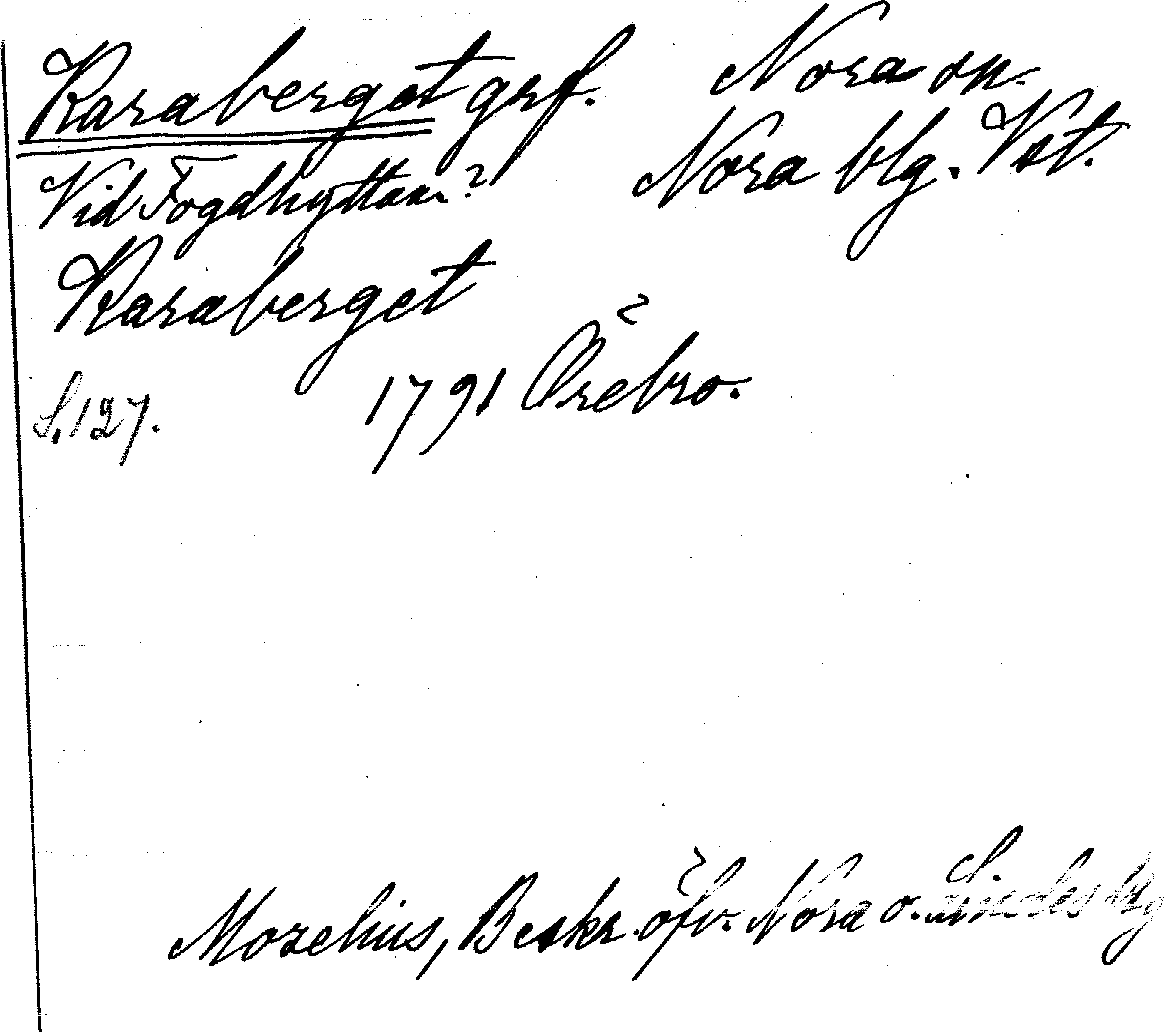 Karaberget grf. Nora sn.
Vid Fogdhyttan? Nora blg. Vst.
Karaberget
S. 127. 1791 Örebro.
Moselius, Beskr. öfv. Nora o. Lindes Bg